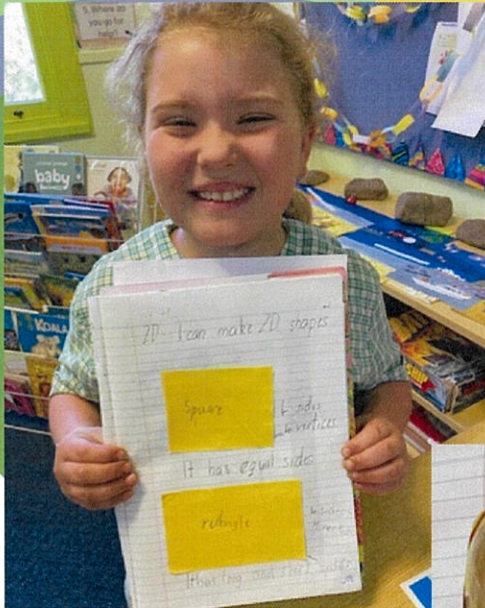 5. Where do
you go for
help?
baby
KOALA
2D I can make 2D shapes
Square
4 sides
4 vertices
It has equal sides
rectangle
It has long and short sides